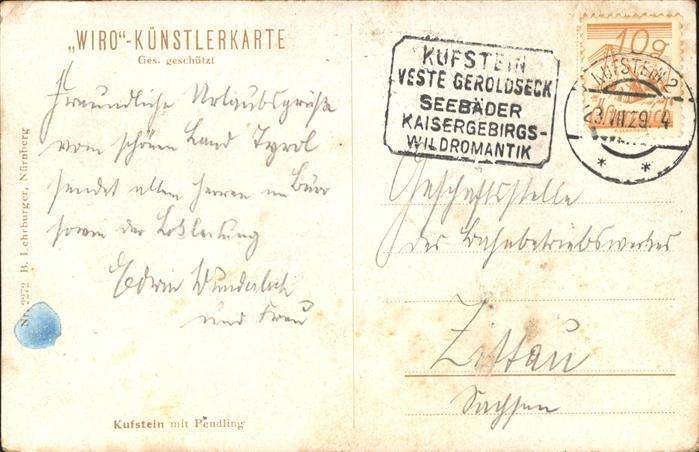 „WIRO“-KÜNSTLERKARTE
Ges. geschützt
Freundliche Urlaubsgrüße
vom schönen Land Tyrol
sendet allen Herren im Büro
sowie der Lokleitung
Edwin Wunderlich
und Frau
Kufstein mit Pendling
Nr. 2272 B. Lehrburger, Nürnberg
KUFSTEIN
VESTE GEROLDSECK
SEEBÄDER
KAISERGEBIRGS-
WILDROMANTIK
10g
KUFSTEIN 2
23.VII.29 4
Geschäftsstelle
des Bahnbetriebswerkes
Zittau
Sachsen